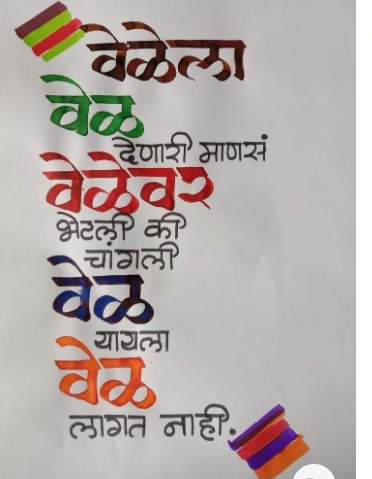 वेळेला
वेळ
देणारी माणसं
वेळेवर
भेटली की
चांगली
वेळ
यायला
वेळ
लागत नाही.